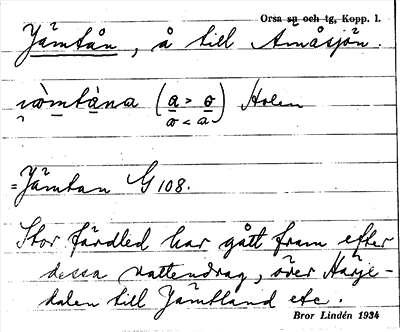 Orsa sn och tg, Kopp. l.
Jämtån, å till Amåsjön.
(a > o) Holen
o < a
=Jämtan G 108.
Stor färdled har gått fram efter
dessa vattendrag, över Härje-
dalen till Jämtland etc.
Bror Lindén 1934